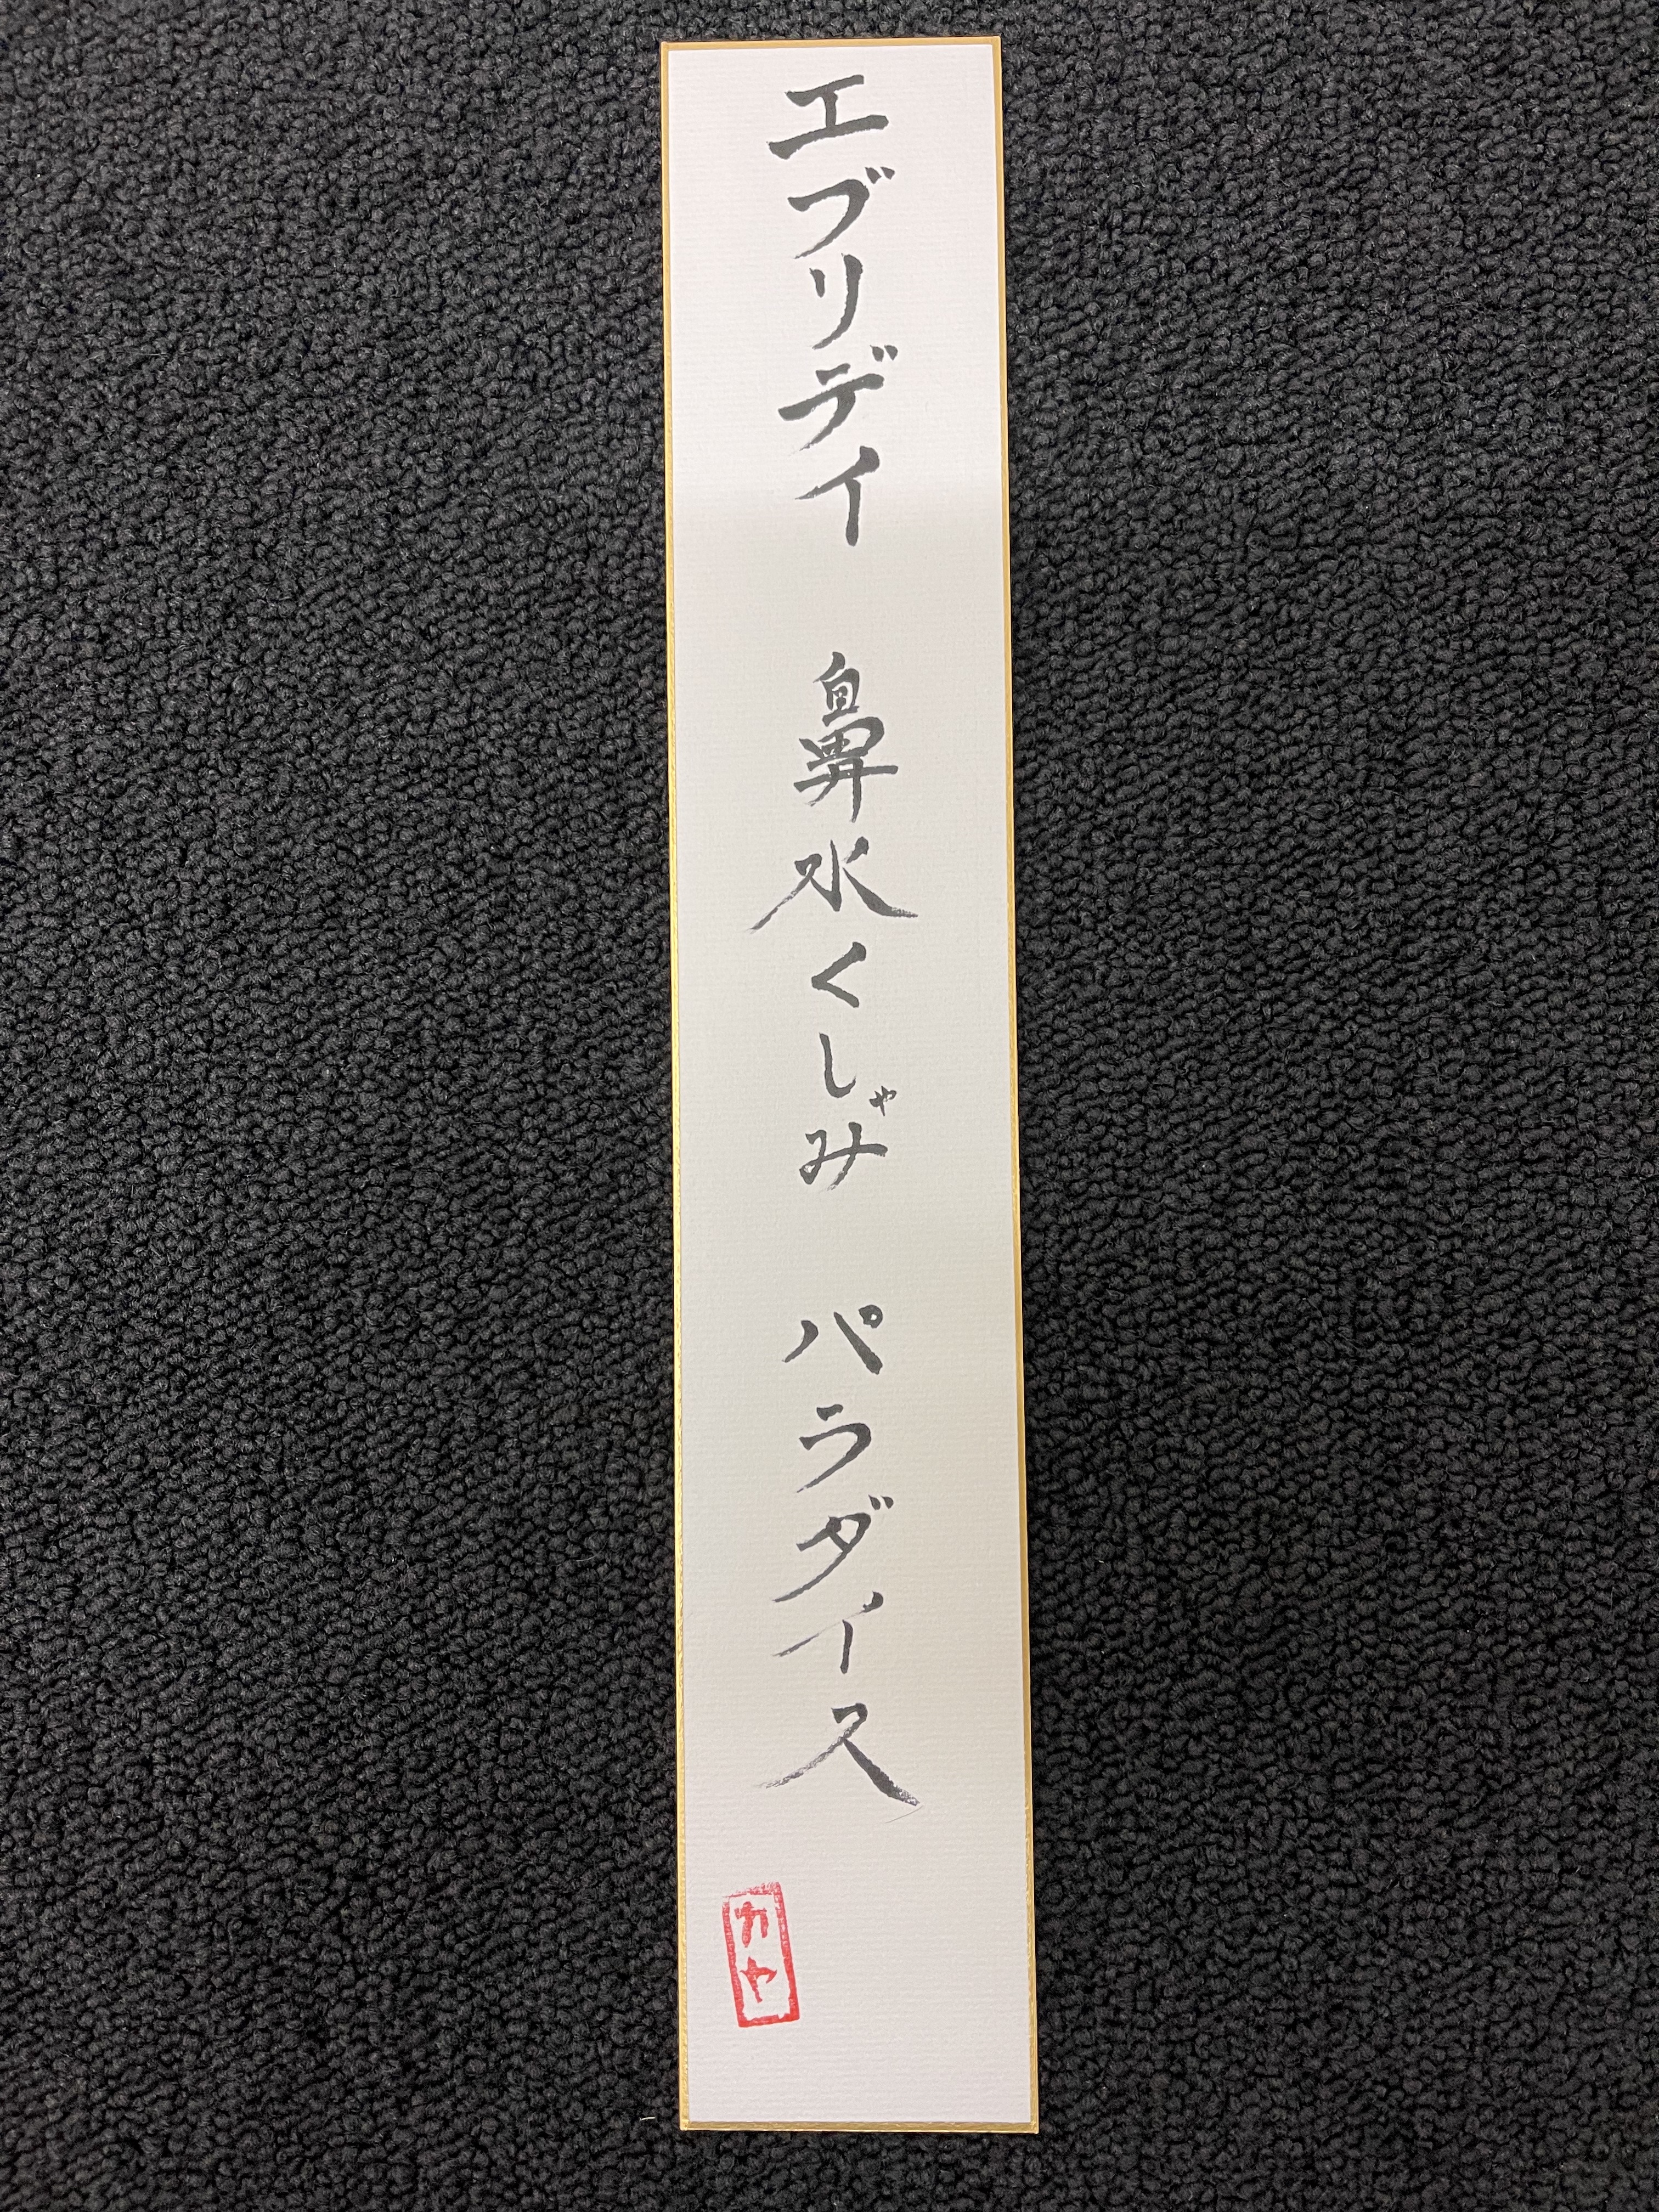 エブリデイ 鼻水くしゃみ パラダイス
カヤ